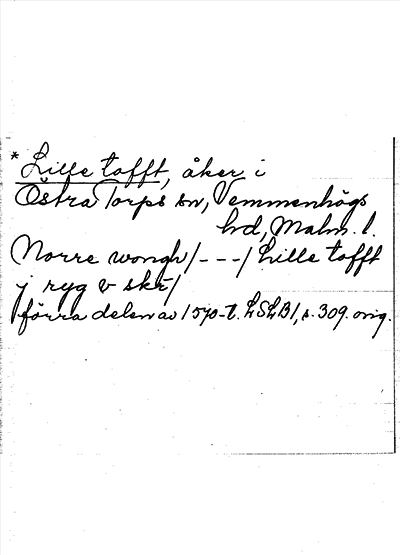 * Lille tofft, åker i
Östra Torps sn, Vemmenhögs
hd, Malm. l.
Norre wongh/---/ Lille tofft
j ryg v skr/
förra delen av 1570-t. LSLB1, s. 309. orig.